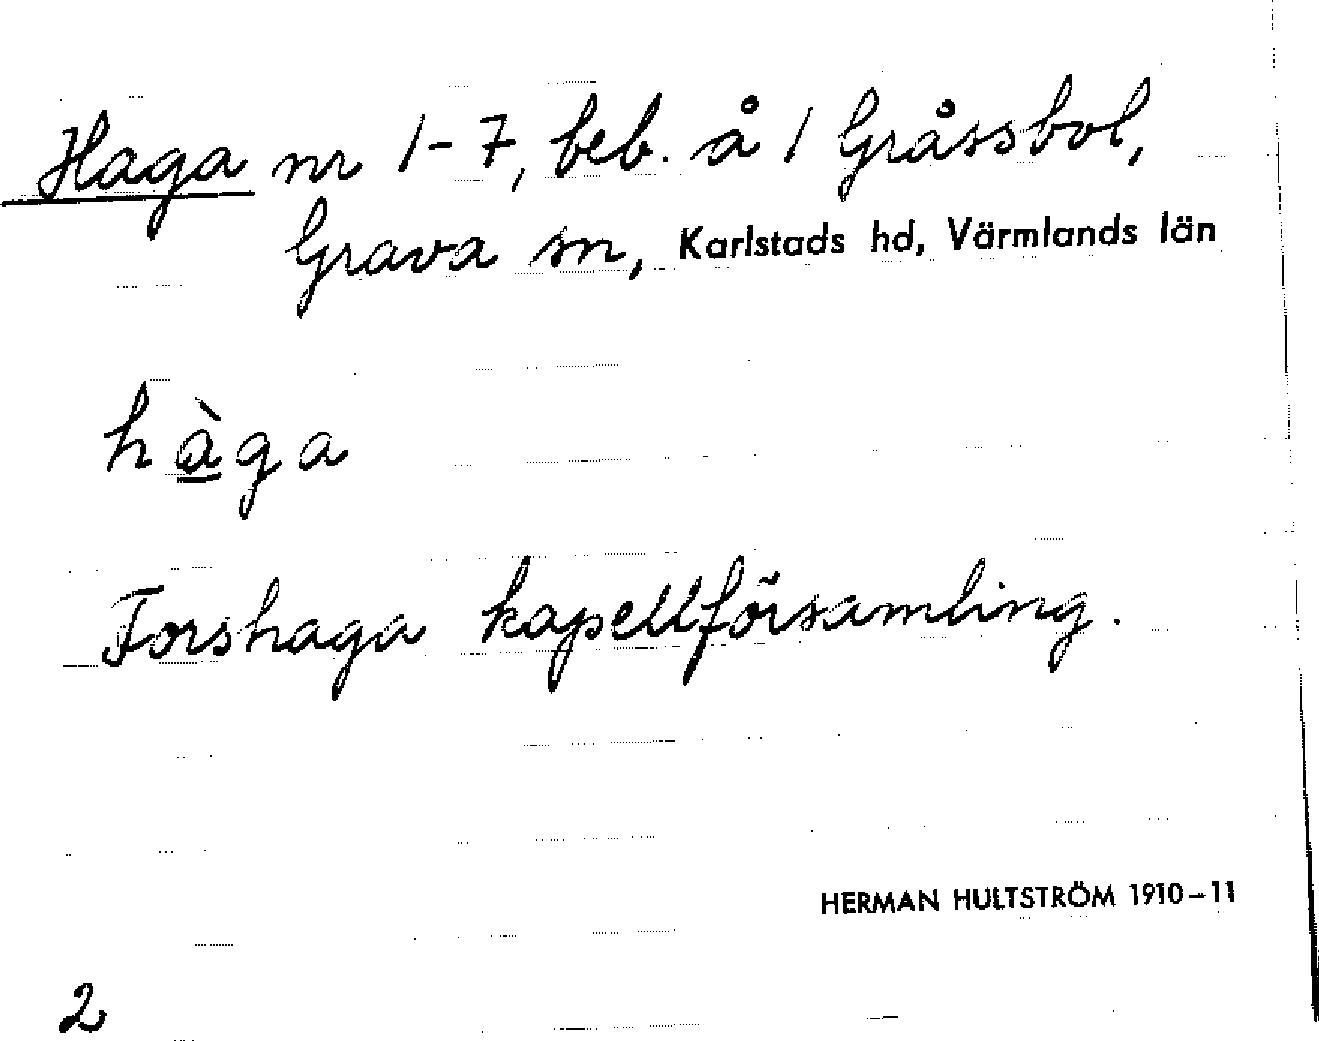 Haga nr 1-7, beb. å 1 Gråssbol,
Grava sn, Karlstads hd, Värmlands län
hàga
Forshaga kapellförsamling.
HERMAN HULTSTRÖM 1910-11
2